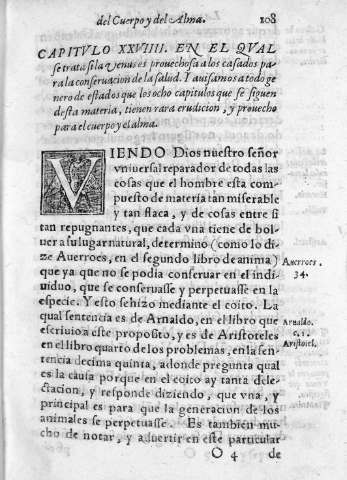 del Cuerpo y del Alma. 108
CAPITVLO XXVIIII. EN EL QVAL
se trata si la Venus es prouechosa a los casados pa
ra la conseruacion de la salud. Y auisamos a todo ge
nero de estados que los ocho capitulos que se siguen
desta materia, tienen rara erudicion, y prouecho
para el cuerpo y el alma.
VIENDO Dios nuestro señor
vniuersal reparador de todas las
cosas que el hombre esta com-
puesto de materia tan miserable
y tan flaca, y de cosas entre si
tan repugnantes, que cada vna tiene de bol-
uer a su lugar natural, determino (como lo di-
ze Auerroes, en el segundo libro de anima)
Auerroes.
que ya que no se podia conseruar en el indi-
34.
uiduo, que se conseruasse y perpetuasse en la
especie. Y esto se hizo mediante el coito. La
qual sentencia es de Arnaldo, en el libro que
Arnaldo.
escriuio a este proposito, y es de Aristoteles
c. 1.
en el libro quarto de los problemas, en la sen-
Aristotel.
tencia decima quinta, adonde pregunta qual
es la causa porque en el coito ay tanta dele-
ctacion, y responde diziendo, que vna, y
principal es para que la generacion de los
animales se perpetuasse. Es tambien mu-
cho de notar, y aduertir en este particular
O 4 de